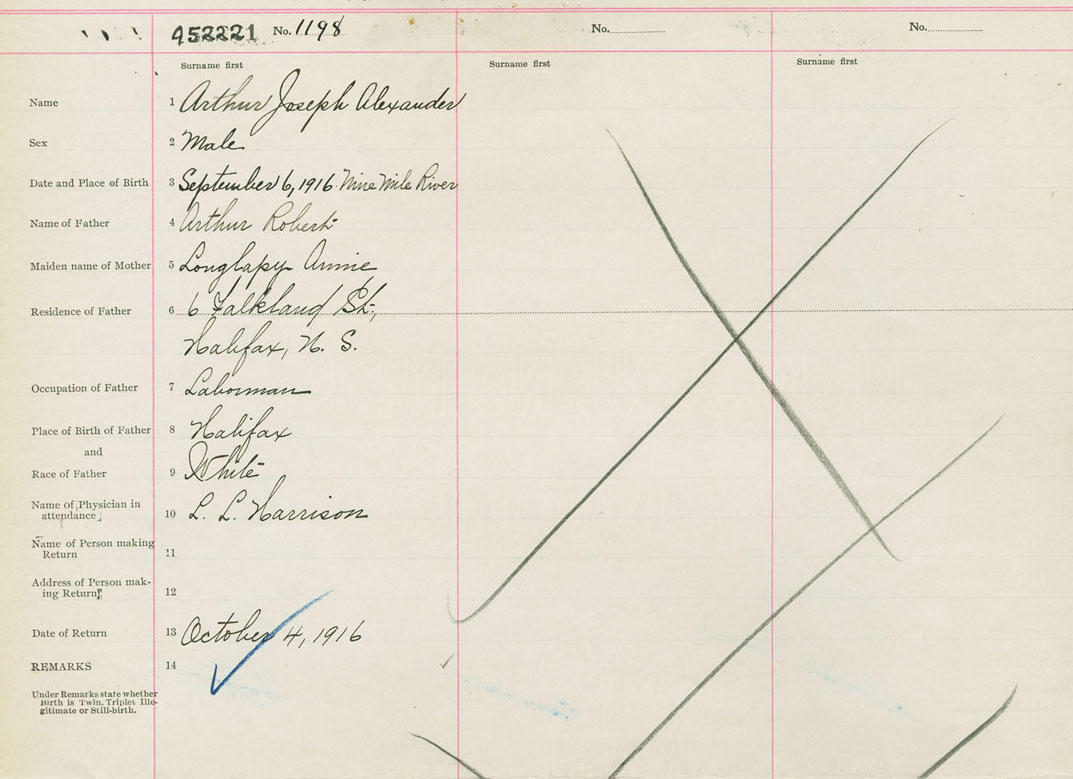 452221 No. 1198 No. No.
Surname first Surname first Surname first
Name 1 Arthur Joseph Alexander
Sex 2 Male
Date and Place of Birth 3 September 6, 1916 Nine Mile River
Name of Father 4 Arthur Robert
Maiden name of Mother 5 Longlapy Annie
Residence of Father 6 6 Falkland St.,
Halifax, N. S.
Occupation of Father 7 Laborman
Place of Birth of Father 8 Halifax
and
Race of Father 9 White
Name of Physician in
attendance 10 L. L. Harrison
Name of Person making
Return 11
Address of Person mak-
ing Return 12
Date of Return 13 October 4, 1916
REMARKS 14
Under Remarks state whether
Birth is Twin, Triplet Ille-
gitimate or Still-birth.